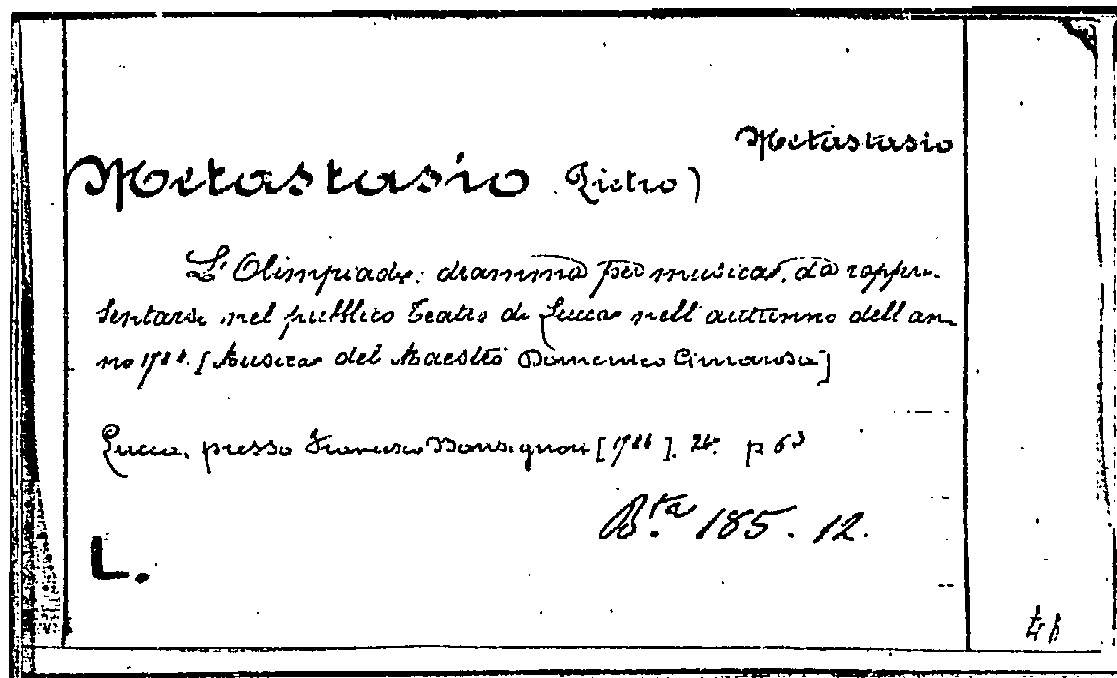 Metastasio
Metastasio (Pietro)
L'Olimpiade: dramma per musica, da rappre-
sentarsi nel pubblico Teatro di Lucca nell'autunno dell'an-
no [Musica del Maestro Domenico Cimarosa]
Lucca, presso Francesco Bonsignori p 63
B.ta 185. 12.
L.